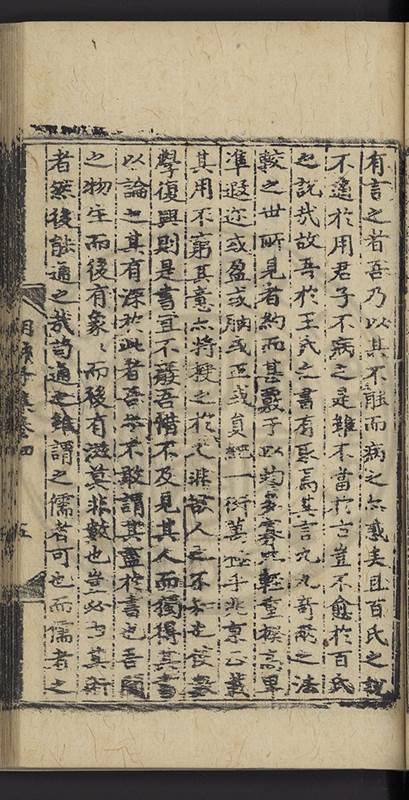 有言之者吾乃以其不能而病之亦惑矣且百氏之說
不遠於用君子不病之是雖不當於古豈不愈於百氏
之說哉故吾於王氏之書有取焉其言九九新蔽之法
較之世所見者約而甚覈子以均多寡以輕重極高卑
準遐邇或盈或朒或正或負經一衍萬極乎兆京正載
其用不窮其意亦將授之於 非欲人之不知也使數
學復興則是書宜不廢吾惜不及見其人而獨得其書
以論之其有深於此者吾亦不敢謂其盡於書也吾聞
之物生而後有象象而後有滋莫非數也豈必皆其術
者然後能通之哉苟通之雖謂之儒者可也而儒者之
集卷四
五